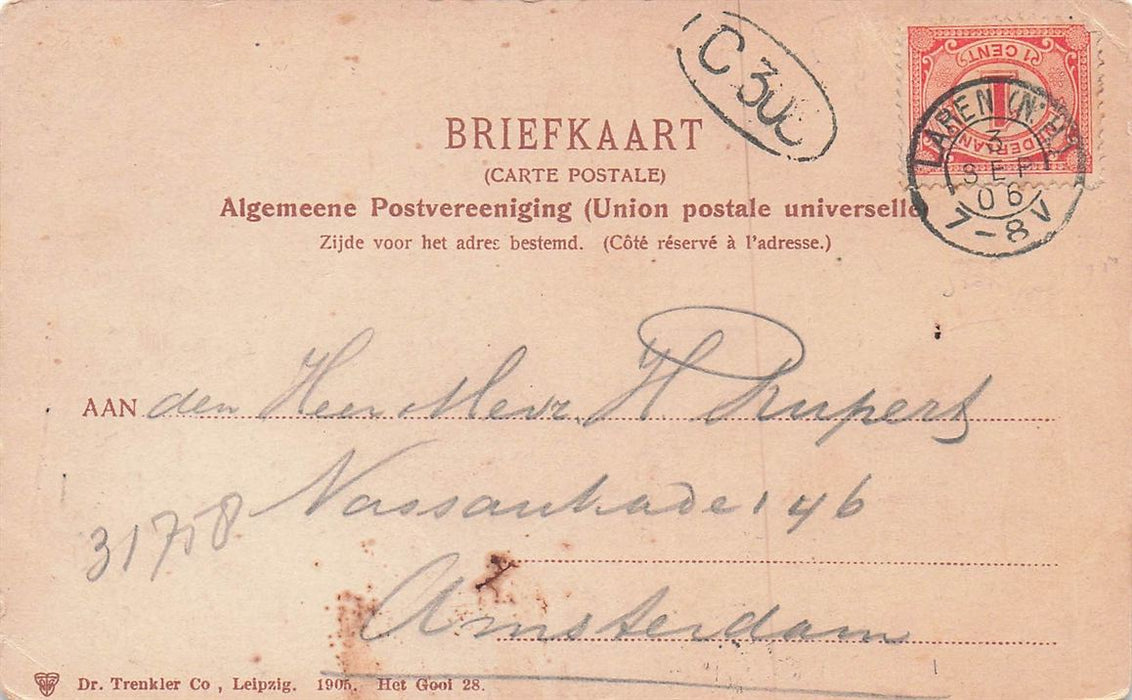 C 30
1 CENT
1
LAREN (N.H.)
3
SEP
06
7-8 V
BRIEFKAART
(CARTE POSTALE)
Algemeene Postvereeniging (Union postale universelle
Zijde voor het adres bestemd. (Côté réservé à l'adresse.)
AAN den Heer Mevr. H Rupert
Nassaukade 146
31758
Amsterdam
Dr. Trenkler Co., Leipzig. 1905. Het Gooi 28.